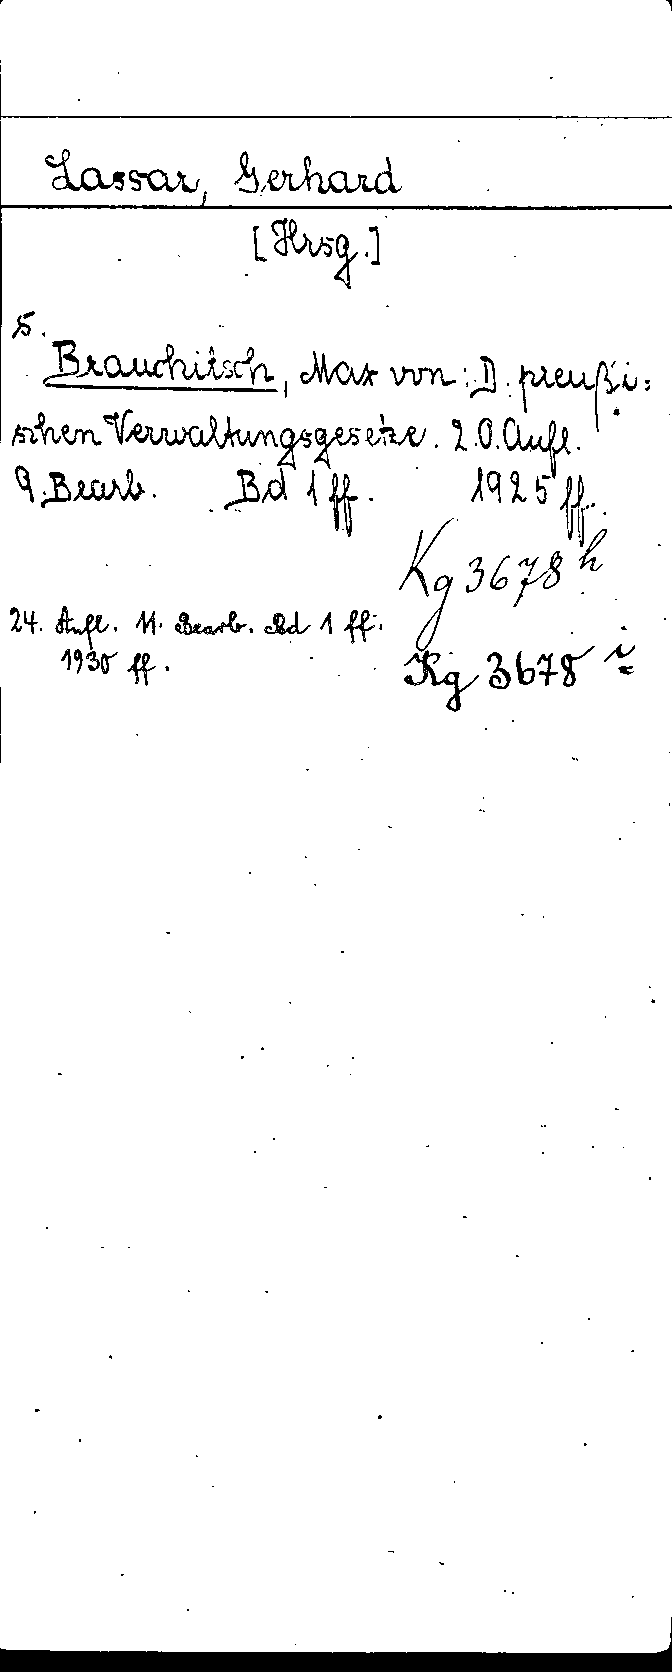 Lassar, Gerhard
[Hrsg.]
s.
Brauchitsch, Max von: D. preußi=
schen Verwaltungsgesetze. 20. Aufl.
9. Bearb. Bd 1 ff. 1925 ff.
Kg 3678 h
24. Aufl. 11. Bearb. Bd 1 ff.
1930 ff. Kg 3678 i